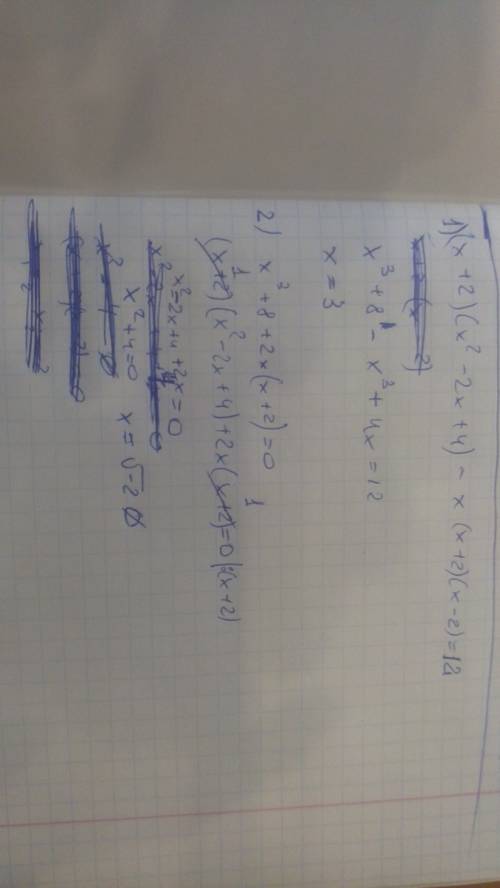 1) (x+2)(x² - 2x+4) - x (x+2)(x-2)=12
x³+8 - x³+4x=12
x=3
2) x³+8+2x(x+2)=0
(x+2)(x²-2x+4)+2x(x+2)=0 |:(x+2)
1 1
x²=2x+4+2x=0
x²+4=0 x=√-2 ∅